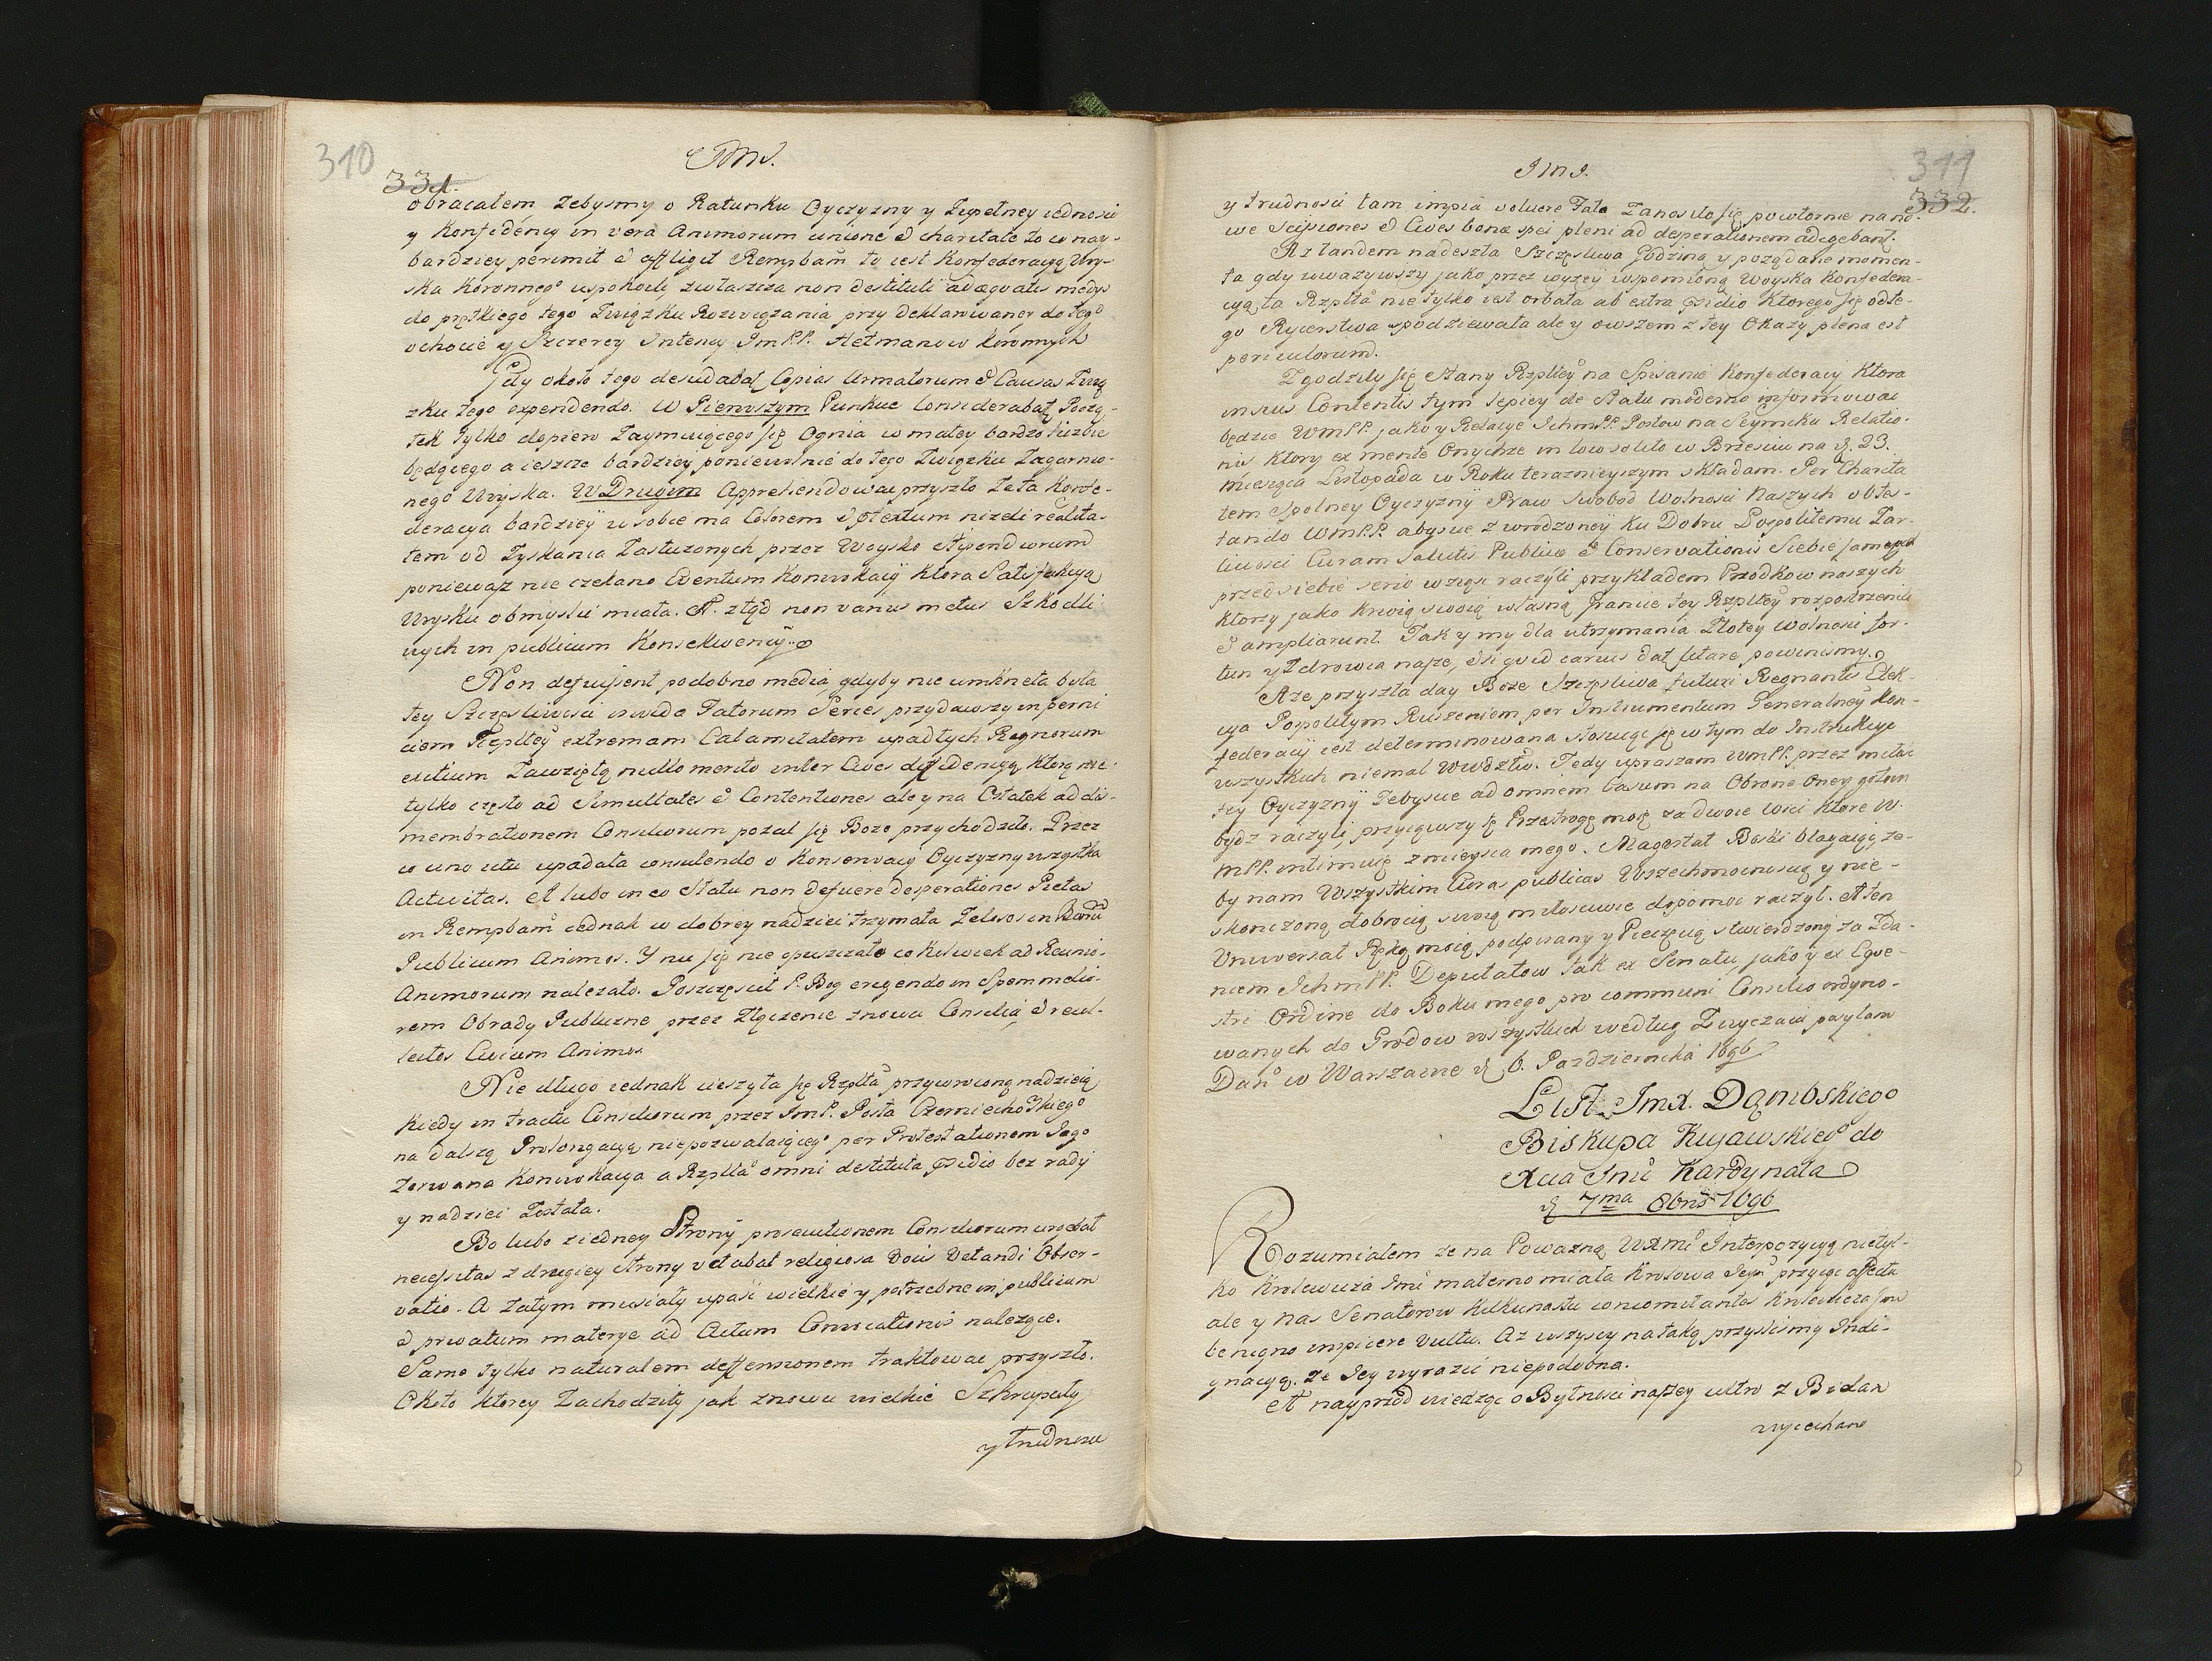 310
331.
JMJ.
obracałem żebysmy o Ratunku Oyczyzny y Zupełney iednosci
y Konfidency in vera Animorum unione & charitate to co nay-
bardziey perimit & affligit Rempbam to iest Konfederacyą Woy-
ska Koronnego uspokoili, zwłaszcza non destituti adæquatis medys
do prętkiego tego Związku Rozwiązania przy deklarowaney do tego
ochocie y Szczerey Intency ImPP. Hetmanow koronnych
Gdy około tego desudabat Copias Armatorum & Causas Zwią
zku tego expendendo. W Pierwszym Punkcie Considerabat Począ-
tek tylko dopiero Zaymuiącego się Ognia w małey bardzo liczbie
będącego a ieszcze bardziey poniewolnie do tego Związku Zagarnio-
nego Woyska. W Drugim Apprehendowac przyszło Ze ta Konfe-
deracya bardziey w sobie ma Colorem & ptextum nizeli realita-
tem od Zyskania Zasłuzonych przez Woysko stipendiorum
poniewaz nie czekano Eventum Konwokacyi ktora Satisfakcyą
Woysku obmyslic miała. A. ztąd non vanus metus Szkodli
wych in publicum Konsekwency.
Non defuissent podobno media, gdyby nie umknęła była
tey Szczęsliwosci invida Fatorum Series przydawszy in perni
ciem Rzpltey extremam Calamitatem upadłych Regnorum
exitium Zawziętą nullo merito inter Cives diffidencyą ktorą nie
tylko często ad Simultates & Contentiones ale y na Ostatek ad dis-
membrationem Consiliorum pozal się Boze przychodziło. Przez
co uno ictu upadała consulendo o Konserwacyi Oyczyzny wszystka
Activitas. A lubo in eo Statu non defuere desperationes Pietas
in Rempbam iednak w dobrey nadziei trzymała Zelosos in Bonum
Publicum Animos. Y nic się nie opuszczało co kolwiek ad Reunio.
Animorum nalezało. Poszczęscił P. Bog erigendo in Spem melio-
rem Obrady Publiczne przez Złączenie znowu Consilia, & recol-
lectos Civium Animos
Nie długo iednak cieszyła się Rzplta przywroconą nadzieią
kiedy in tractu Consiliorum przez ImP. Posła Czerniechowskiego
na dalszą Prolongacyą niepozwalaiącego per Protestationem Jego
Zerwana Konwokacya a Rzplta omni destituta psidio bez rady
y nadziei Została.
Bo lubo z iedney Strony prosecutionem Consiliorum urgebat
necessitas z drugiey strony vetabat religiosa vocis Vetandi Obser-
vatio. A Zatym musiały upasc wielkie y potrzebne in publicum
& privatum materye ad Actum Convocationis nalezące.
Samo tylko naturalem deffensionem traktowac przyszło.
Około ktorey Zachodziły jak znowu wielkie Szkrupuły
y trudnosci
311
332.
JMJ.
y trudnosci tam impia voluere Fata Zanosiło się powtornie na no-
we Scissiones & Cives bonæ spei pleni ad desperationem adigebant.
Az tandem nadeszła Szczęsliwa Godzina y poządane momen-
ta gdy uwazywszy jako przez wyzey wspomnioną Woyska Konfedera-
cyą, ta Rzplta nie tylko iest orbata ab extra psidio ktorego się od te-
go Rycerstwa spodziewała ale y owszem z tey Okazyi plena est
periculorum.
Zgodziły się Stany Rzpltey na Spisanie Konfederacyi ktora
in suis Contentis tym lepiey de statu moderno informowac
będzie WmPP. jako y Relacye IchmPP. Posłow na Seymiku Relatio-
nis ktory ex mente Onychze in loco solito w Brzesciu na d. 23.
miesiąca Listopada w Roku teraznieyszym składam. Per Charita
tem Spolney Oyczyzny Praw Swobod Wolnosci Naszych obtes-
tando WmPP. abyscie z wrodzoney ku Dobru Pospolitemu Zar-
liwosci Curam Salutis Publicæ & Conservationis Siebie samych
przed siebie serio wziąc raczyli przykładem Przodkow naszych
ktorzy jako krwią swoią własną Granice tey Rzpltey rozpostrzenili
& ampliarunt. Tak y my dla utrzymania Złotey Wolnosci for-
tun y Zdrowia nasze, & si quid carius dat litare powinnismy.
A ze przyszła day Boze Szczęsliwa futuri Regnantis Elek-
cya Pospolitym Ruszeniem per Instrumentum Generalney Kon-
federacyi iest determinowana stosuiąc się w tym do Instrukcyi
wszystkich niemal Wwdztw. Tedy upraszam WmPP. przez miłosc
tey Oyczyzny Zebyscie ad omnem casum na Obronę Oney gotowi
bydz raczyli, przyiąwszy tę Przestrogę moię za dwoie Wici ktore W.
mPP. intimuię z mieysca mego. Magestat Boski blagaiąc, ze-
by nam Wszystkim Curas publicas Wszechmocnoscią y nie-
skonczoną dobrocią swoią miłosciwie dopomoc raczył. A ten
Uniwersał Ręką moią podpisany y Pieczęcią stwierdzony za Zda-
niem IchmPP. Deputatow tak ex Senatu, jako y ex Eque-
stri Ordine do Boku mego pro communi Consilio ordyno-
wanych do Grodow wszystkich według Zwyczaiu posyłam
Dan w Warszawie d. 6. Pazdziernika 1696
List Jmx. Dąmbskiego
Biskupa Kujawskiego do
Xcia Jmci Kardynała
d 7ma 8bris 1696
Rozumiałem ze na Powazną WXmci Interpozycyą nietyl-
ko Krolewicza Jmci materno miała Krolowa Jeym przyiąc affectu
ale y nas Senatorow kilkunastu concomitantes Krolewicza Jm
benigno inspicere vultu. Az wszyscy na taką przyszlismy Indi-
gnacyą. Ze Jey wyrazic niepodobna.
A nayprzod wiedząc o Bytnosci naszey ultro z Bielan
wyiechano